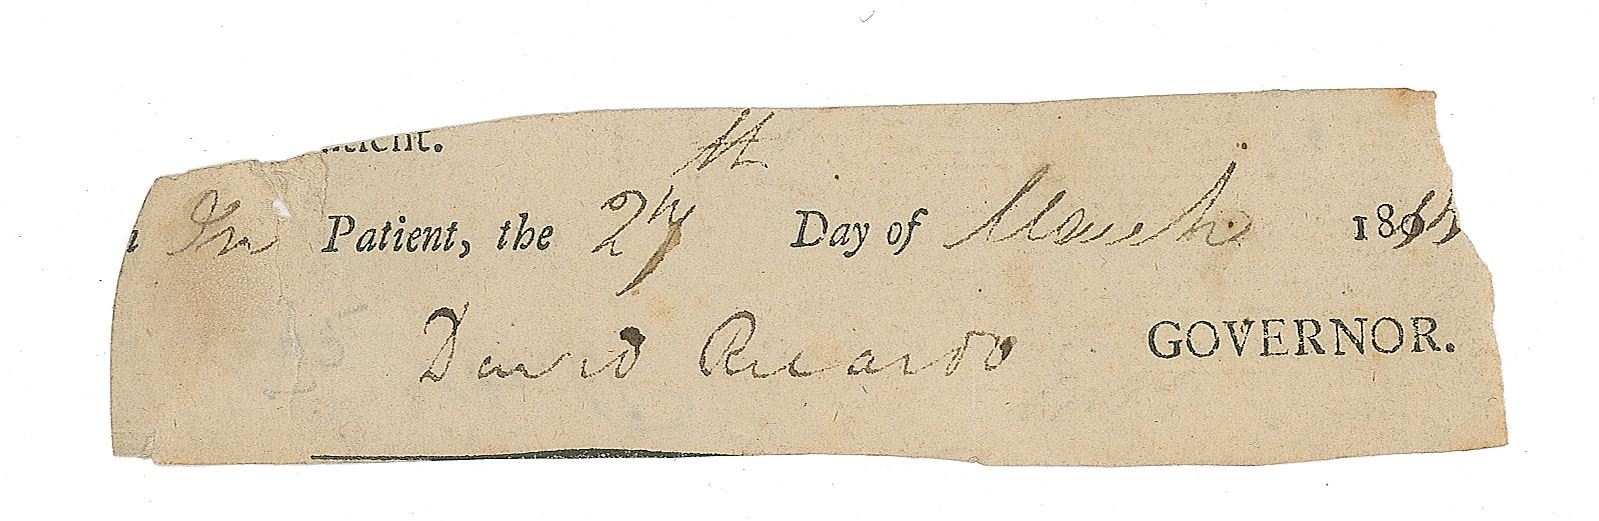 In Patient, the 27th Day of March 181
David Ricardo GOVERNOR.